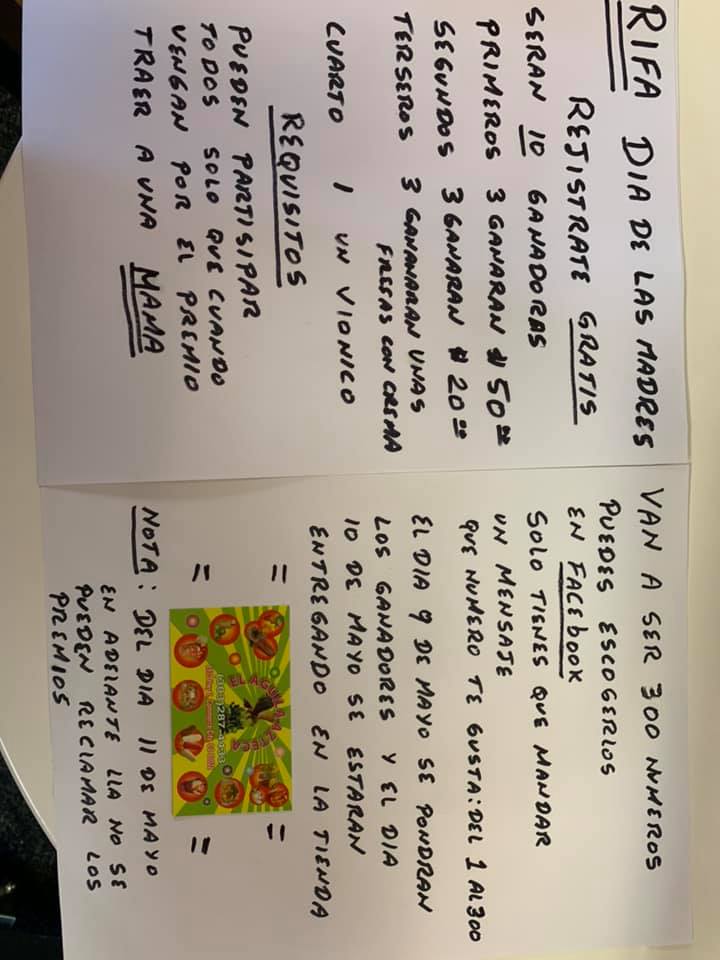 RIFA DIA DE LAS MADRES
REJISTRATE GRATIS
SERAN 10 GANADORES
PRIMEROS 3 GANARAN $50.00
SEGUNDOS 3 GANARAN $20.00
TERSEROS 3 GANANARAN UNAS
FRESAS CON CREMA
CUARTO 1 UN VIONICO
REQUISITOS
PUEDEN PARTISIPAR
TODOS SOLO QUE CUANDO
VENGAN POR EL PREMIO
TRAER A UNA MAMA
VAN A SER 300 NUMEROS
PUEDES ESCOGERLOS
EN FACEbOOK
SOLO TIENES QUE MANDAR
UN MENSAJE
QUE NUMERO TE GUSTA: DEL 1 AL 300
EL DIA 9 DE MAYO SE PONDRAN
LOS GANADORES Y EL DIA
10 DE MAYO SE ESTARAN
ENTREGANDO EN LA TIENDA
= =
EL AGUILA AZTECA
= =
NOTA: DEL DIA 11 DE MAYO
EN ADELANTE LLA NO SE
PUEDEN RECLAMAR LOS
PREMIOS